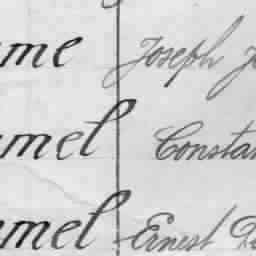 me Joseph J
mel Constan
mel Ernest